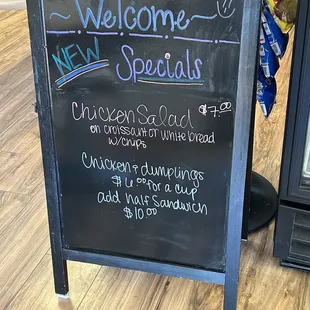 ~Welcome~
NEW Specials
Chicken Salad $7.00
on croissant or white bread
w/chips
Chicken & dumplings
$6.00 for a cup
add half Sandwich
$10.00